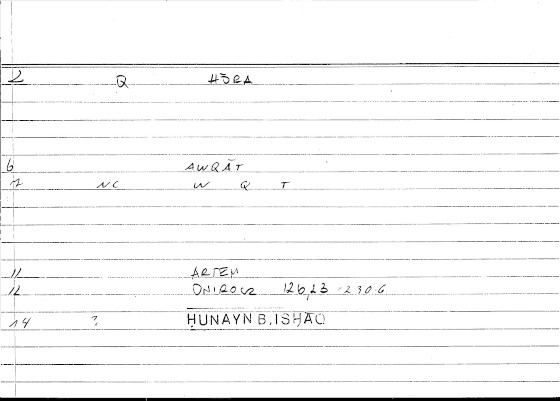 2 Q HŌRA
6 AWQĀT
7 NC W Q T
11 ARTEM
12 ONIROCR 126,23 - 230.6
14 ? ḤUNAYN B. ISḤĀQ